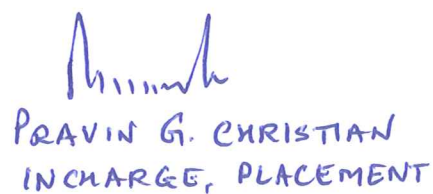 PRAVIN G. CHRISTIAN
INCHARGE, PLACEMENT